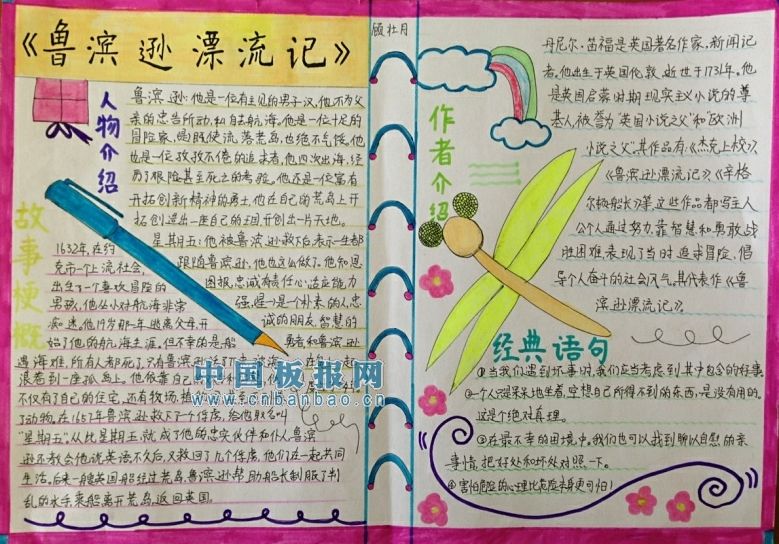 《鲁滨逊漂流记》
顾壮月
人物介绍
鲁滨逊:他是一位有主见的男子汉,他不为父
亲的忠告所动,私自去航海,他是一位十足的
冒险家,即使流落荒岛,也绝不气馁。他
也是一位孜孜不倦的追求者,他四次出海,经
历了艰险甚至死亡的考验。他还是一位富有
开拓创新精神的勇士,他在自己的荒岛上开
拓创造出一座自己的王国,开创出一片天地。
星期五:他被鲁滨逊救下后,表示一生都
跟随鲁滨逊,他也这么做了。他知恩
图报,忠诚有责任心,适应能力
强,是个朴素的人,忠
诚的朋友,智慧的
勇者和鲁滨逊
故事梗概
1632年,在约
克市一个上流社会,
出生了一个喜欢冒险的
男孩,他从小对航海非常
开始了他的航海生涯。但不幸的是,船
遇海难,所有人都死了,只有鲁滨逊
浪卷到一座孤岛上。他依靠自己
不仅有了自己的住宅,还有牧场,
了动物。在1657年鲁滨逊救下了一个俘虏,给他取名叫
“星期五”,从此星期五就成了他的忠实伙伴和仆人,鲁滨
逊还教会他说英语。不久,又救回了几个俘虏,他们在一起共同
生活。后来一艘英国船经过荒岛,鲁滨逊帮助船长制服了判
乱的水手,乘船离开荒岛,返回英国。
作者介绍
丹尼尔·笛福是英国著名作家,新闻记
者。他出生于英国伦敦,逝世于1731年。他
是英国启蒙时期现实主义小说的奠
基人,被誉为“英国小说之父”和“欧洲
小说之父”,其作品有:《杰克上校》、
《鲁滨逊漂流记》、《辛格
尔顿船长》等,这些作品都写主人
公个人通过努力,靠智慧和勇敢战
胜困难,表现了当时追求冒险,倡
导个人奋斗的社会风气。其代表作《鲁
滨逊漂流记》。
经典语句
①当我们遇到坏事时,我们应当考虑到其中包含的好事。
②一个人只是呆呆地坐着,空想自己所得不到的东西,是没有用的。
这是个绝对真理。
③在最不幸的困境中,我们也可以找到聊以自慰的亲
事情,把好处和坏处对照一下。
④害怕危险的心理比危险本身更可怕!
中国板报网
www.cnbanbao.cn